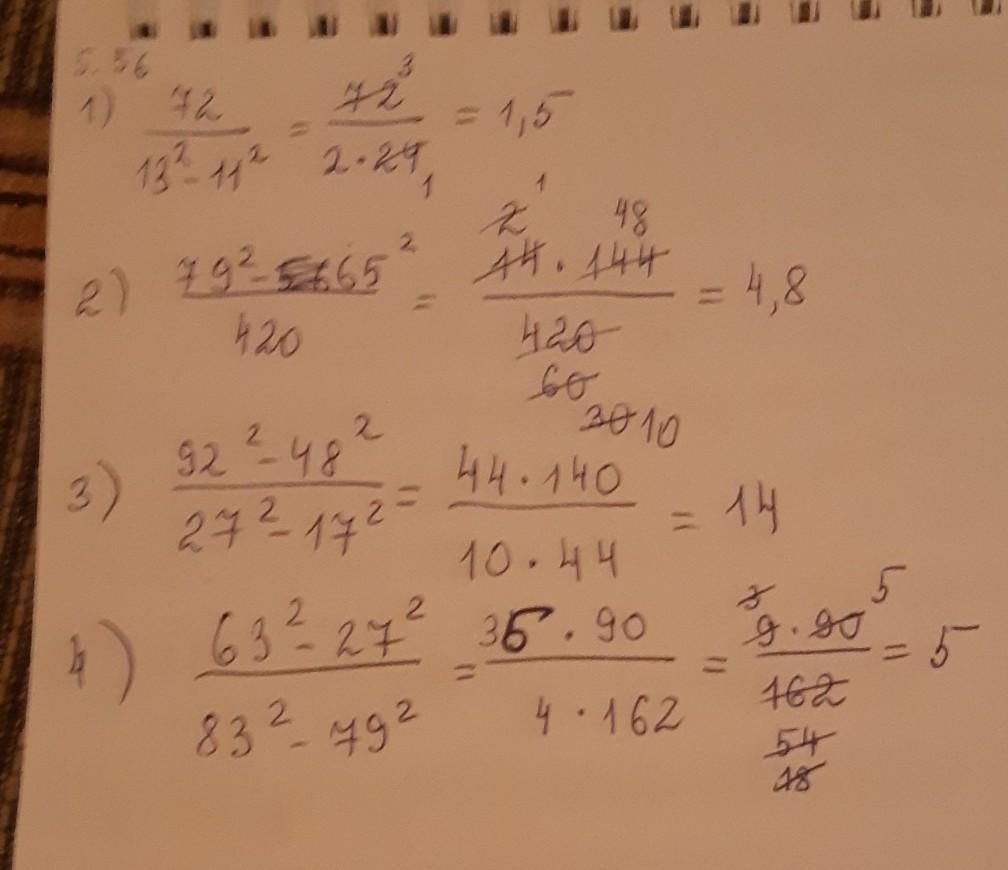 5.56
1) 72 / (13² - 11²) = 72 3 / (2 · 24 1) = 1,5
2) (79² - 65²) / 420 = (14 2 1 · 144 48) / (420 60 30 10) = 4,8
3) (92² - 48²) / (27² - 17²) = (44 · 140) / (10 · 44) = 14
4) (63² - 27²) / (83² - 79²) = (36 · 90) / (4 · 162) = (9 · 90 5) / (162 54 18) = 5